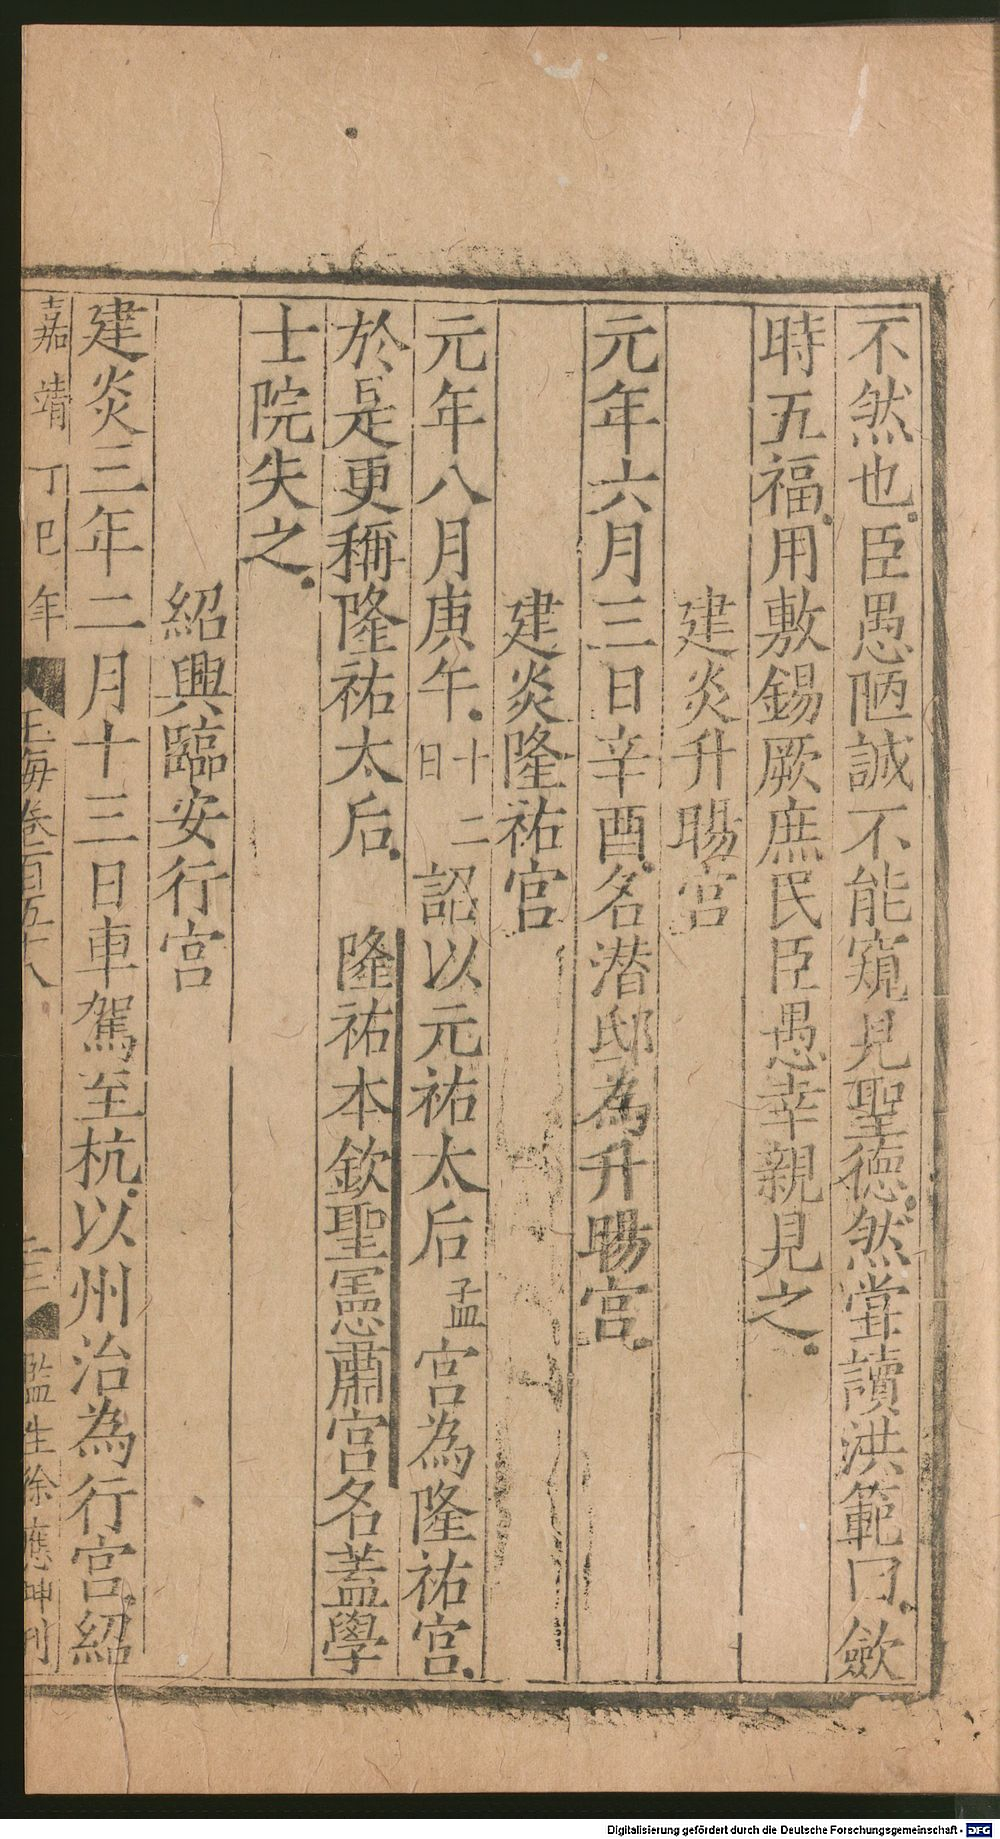 不然也臣愚陋誠不能窺見聖德然甞讀洪範曰歛
時五福用敷錫厥庶民臣愚幸親見之
建炎升暘宮
元年六月三日辛酉名潛邸為升暘宮
建炎隆祐宮
元年八月庚午十二日詔以元祐太后孟宮為隆祐宮
於是更稱隆祐太后 隆祐本欽聖憲肅宮名蓋學
士院失之
紹興臨安行宮
建炎三年二月十三日車駕至杭以州治為行宮紹
嘉靖丁巳年 玉海卷一百五十八 監生徐應坤刊
Digitalisierung gefördert durch die Deutsche Forschungsgemeinschaft - DFG